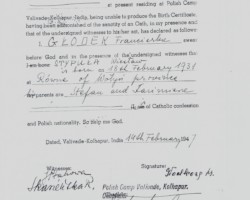 at present residing at Polish Camp
Valivade-Kolhapur, India, being unable to produce the Birth Certificate,
having been admonished of the sanctity of an Oath, in my presence and
that of the undersigned witnesses to his/her act, has declared as follows:
I GŁODEK Franciszka
before God and in the presence of the undersigned witnesses
CZYPULA Wiesław
is born on 18th February 1931
Równe of Wołyń province
parents are: Stefan and
of Catholic confession
and Polish nationality. So help me God.
Dated, Valivade Kolhapur, India 19th February 1947
Witnesses: Signature:
Polish Camp Valivade, Kolhapur.